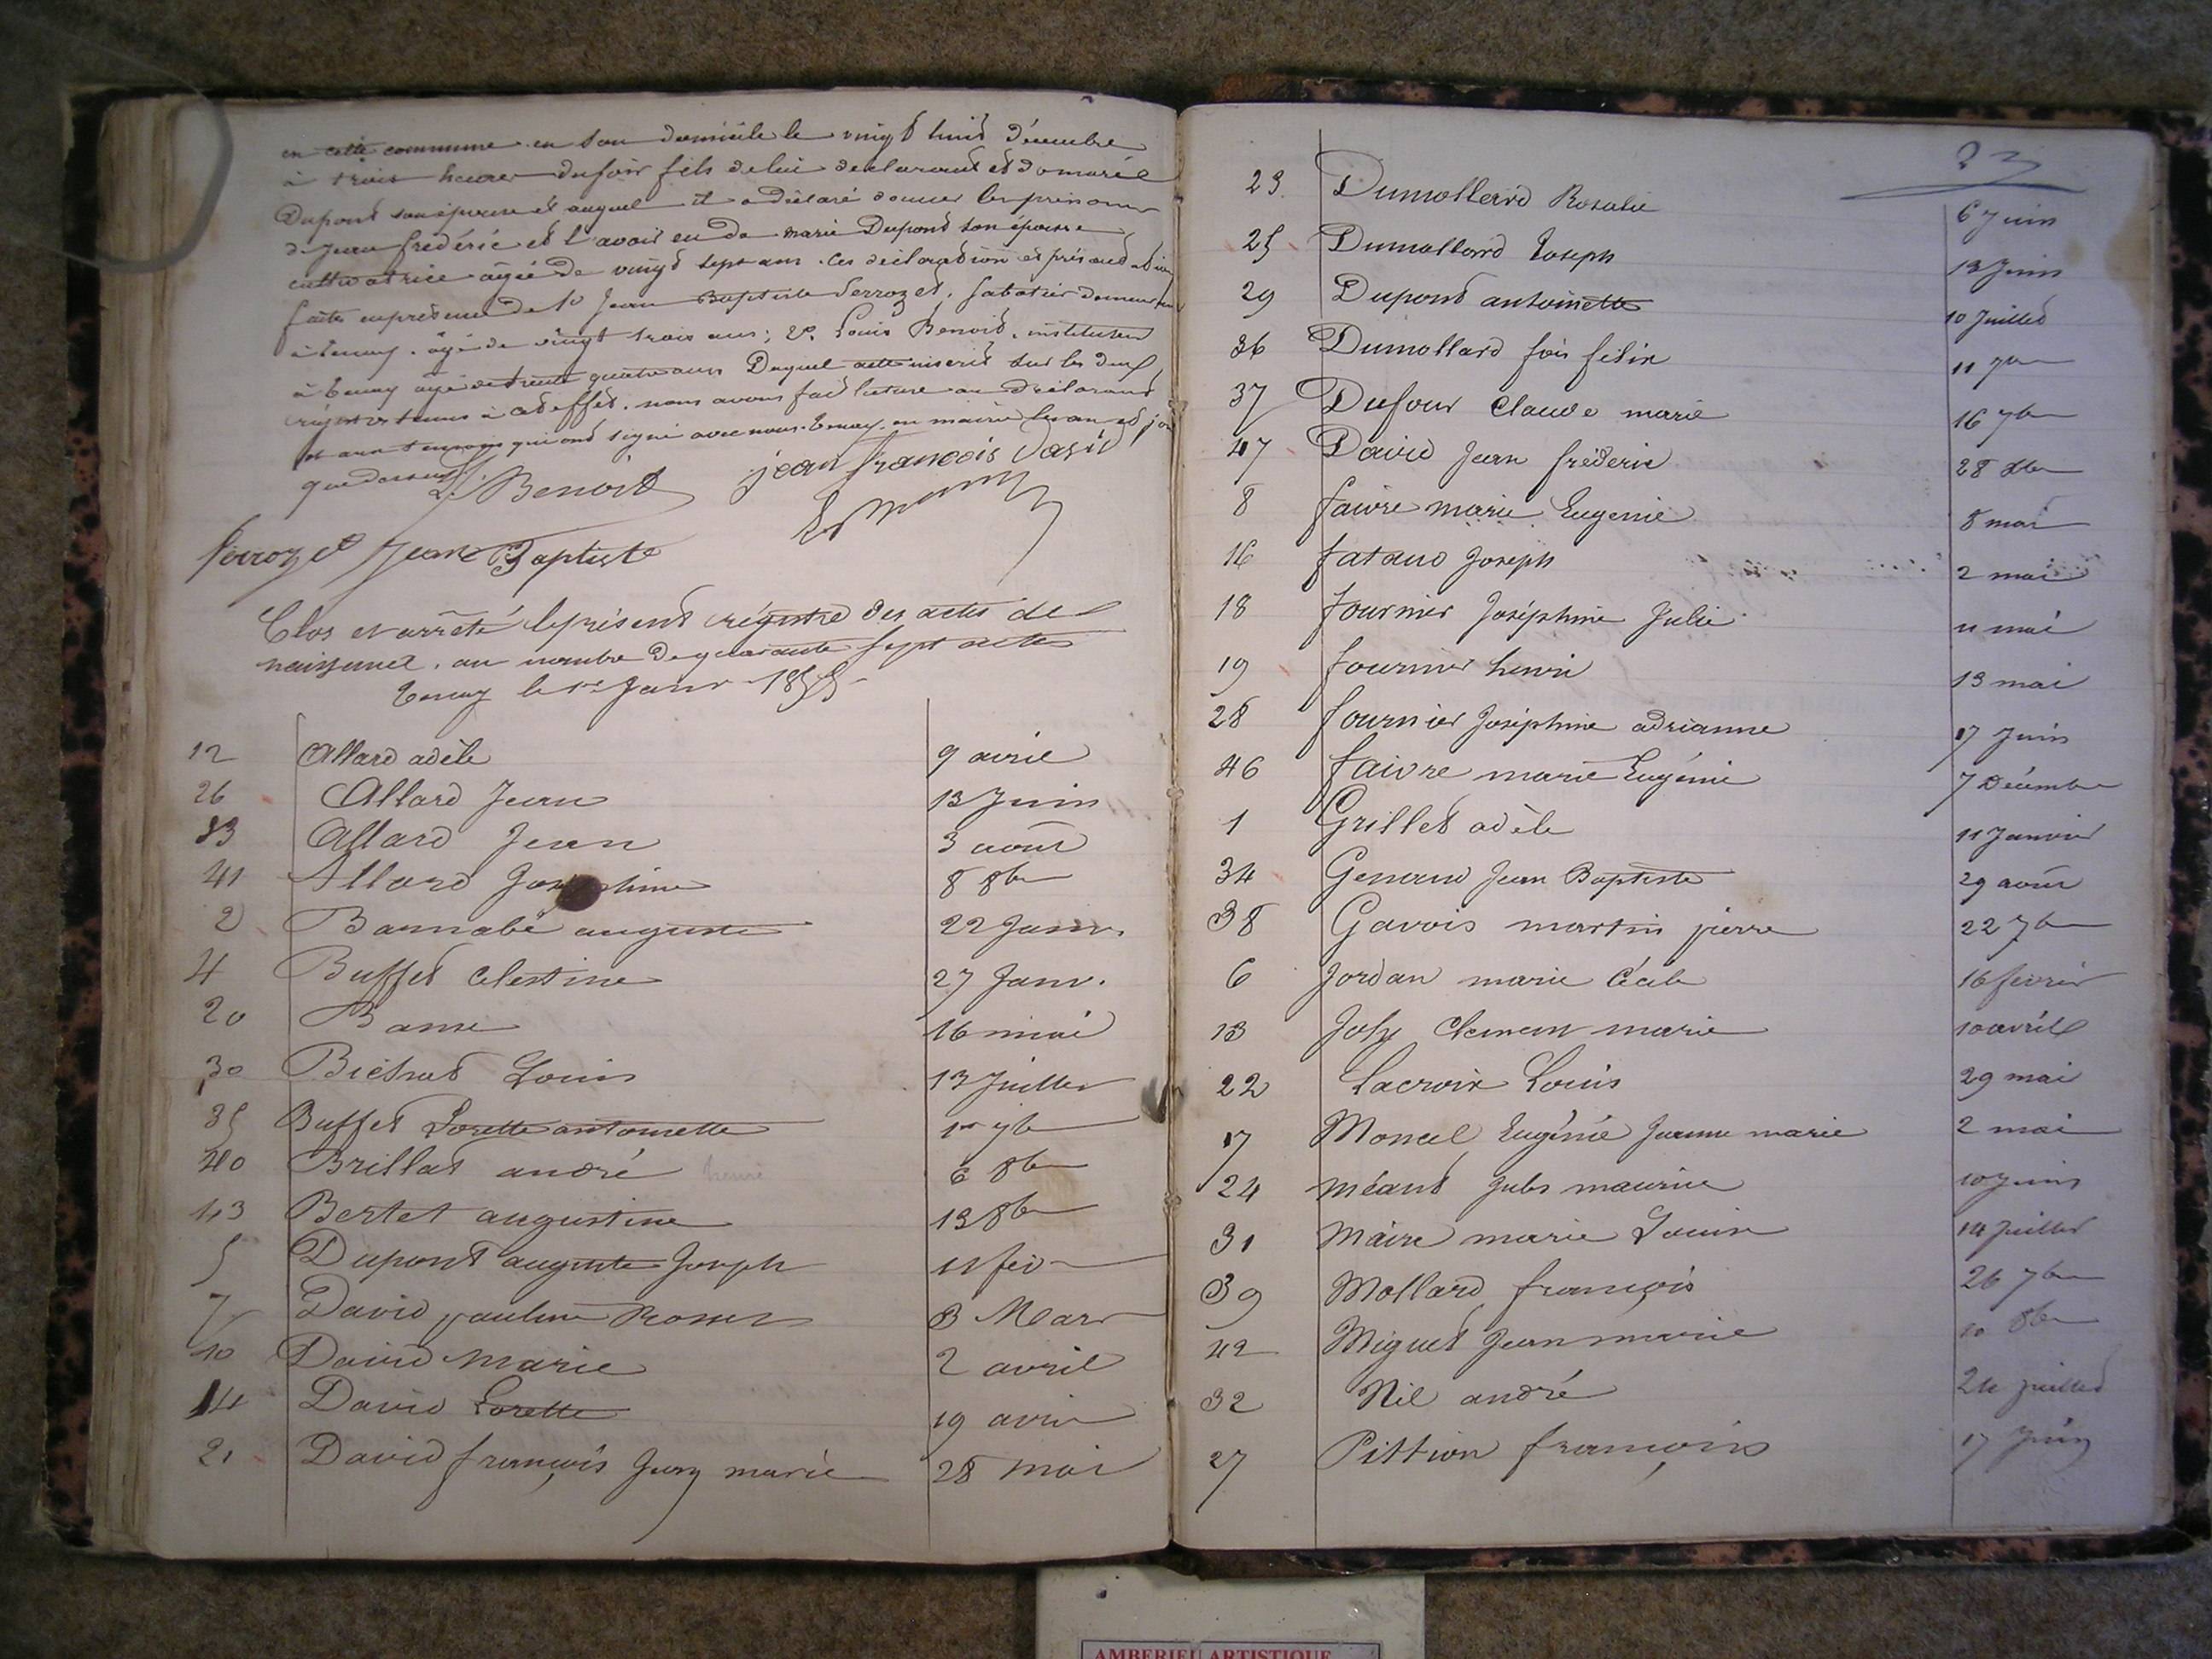 en cette commune en son domicile le vingt huit décembre
à trois heures du soir fils de lui déclarant et de marie
Dupont son épouse et auquel il a déclaré donner les prénoms
de Jean frédéric et l'avoir eu de marie Dupont son épouse
cultivatrice âgée de vingt sept ans. Ces déclaration et présentation
faites en présence de 1o Jean Baptiste Perrozet, sabotier demeurant
à Tenay, âgé de vingt trois ans; 2o Louis Benoit, instituteur
à Tenay âgé de trente quatre ans Duquel acte inscrit sur les deux
régistres tenus à cet effet, nous avons fait lecture au déclarant
et aux temoins qui ont signé avec nous. Tenay, en mairie les an et jour
que dessus
L. Benoit jean francois david
Perrozet Jean Baptiste
Clos et arrêté le présent régistre des actes de
naissance, au nombre de quarante sept actes
Tenay le 1er Janv 1855
12 Allard adèle 9 avril
26 Allard Jean 13 Juin
33 Allard Jean 3 août
41 Allard Josephine 8 8bre
2 Barnabé auguste 22 Janv.
4 Buffet Celestine 27 Janv.
20 Barre 16 mai
30 Bichat Louis 13 Juillet
35 Buffet Lorette antoinette 1er 7bre
40 Brillat andré henri 6 8bre
43 Bertet augustine 13 8bre
5 Dupont auguste Joseph 11 fév
7 David pauline 3 Mars
10 David Marie 2 avril
14 David Lorette 19 avril
21 David françois Jean marie 28 mai
23
23 Dumollard Rosalie 6 Juin
25 Dumollard Joseph 13 Juin
29 Dupont antoinette 10 Juillet
36 Dumollard fois felix 11 7bre
37 Dufour Claude marie 16 7bre
47 David Jean frédéric 28 Xbre
8 faivre marie Eugenie 8 mar
16 fataud Joseph 2 mai
18 fournier Joséphine Julie 11 mai
19 fournier henri 13 mai
28 fournier Joséphine adrianne 17 Juin
46 faivre marie Eugénie 7 Décembre
1 Grillet adèle 11 Janvier
34 Genaud Jean Baptiste 29 août
38 Gavois martin pierre 22 7bre
6 Jordan marie Cécile 16 fevrier
13 Joly Clement marie 10 avril
22 Lacroix Louis 29 mai
17 Moncel Eugénie Jeanne marie 2 mai
24 méant Jules maurice 10 Juin
31 Maire marie Louise 14 Juillet
39 Mollard françois 26 7bre
42 Miguet Jean marie 10 8bre
32 Nil andré 24 Juillet
27 Pittion françois 17 Juin
AMBERIEU ARTISTIQUE